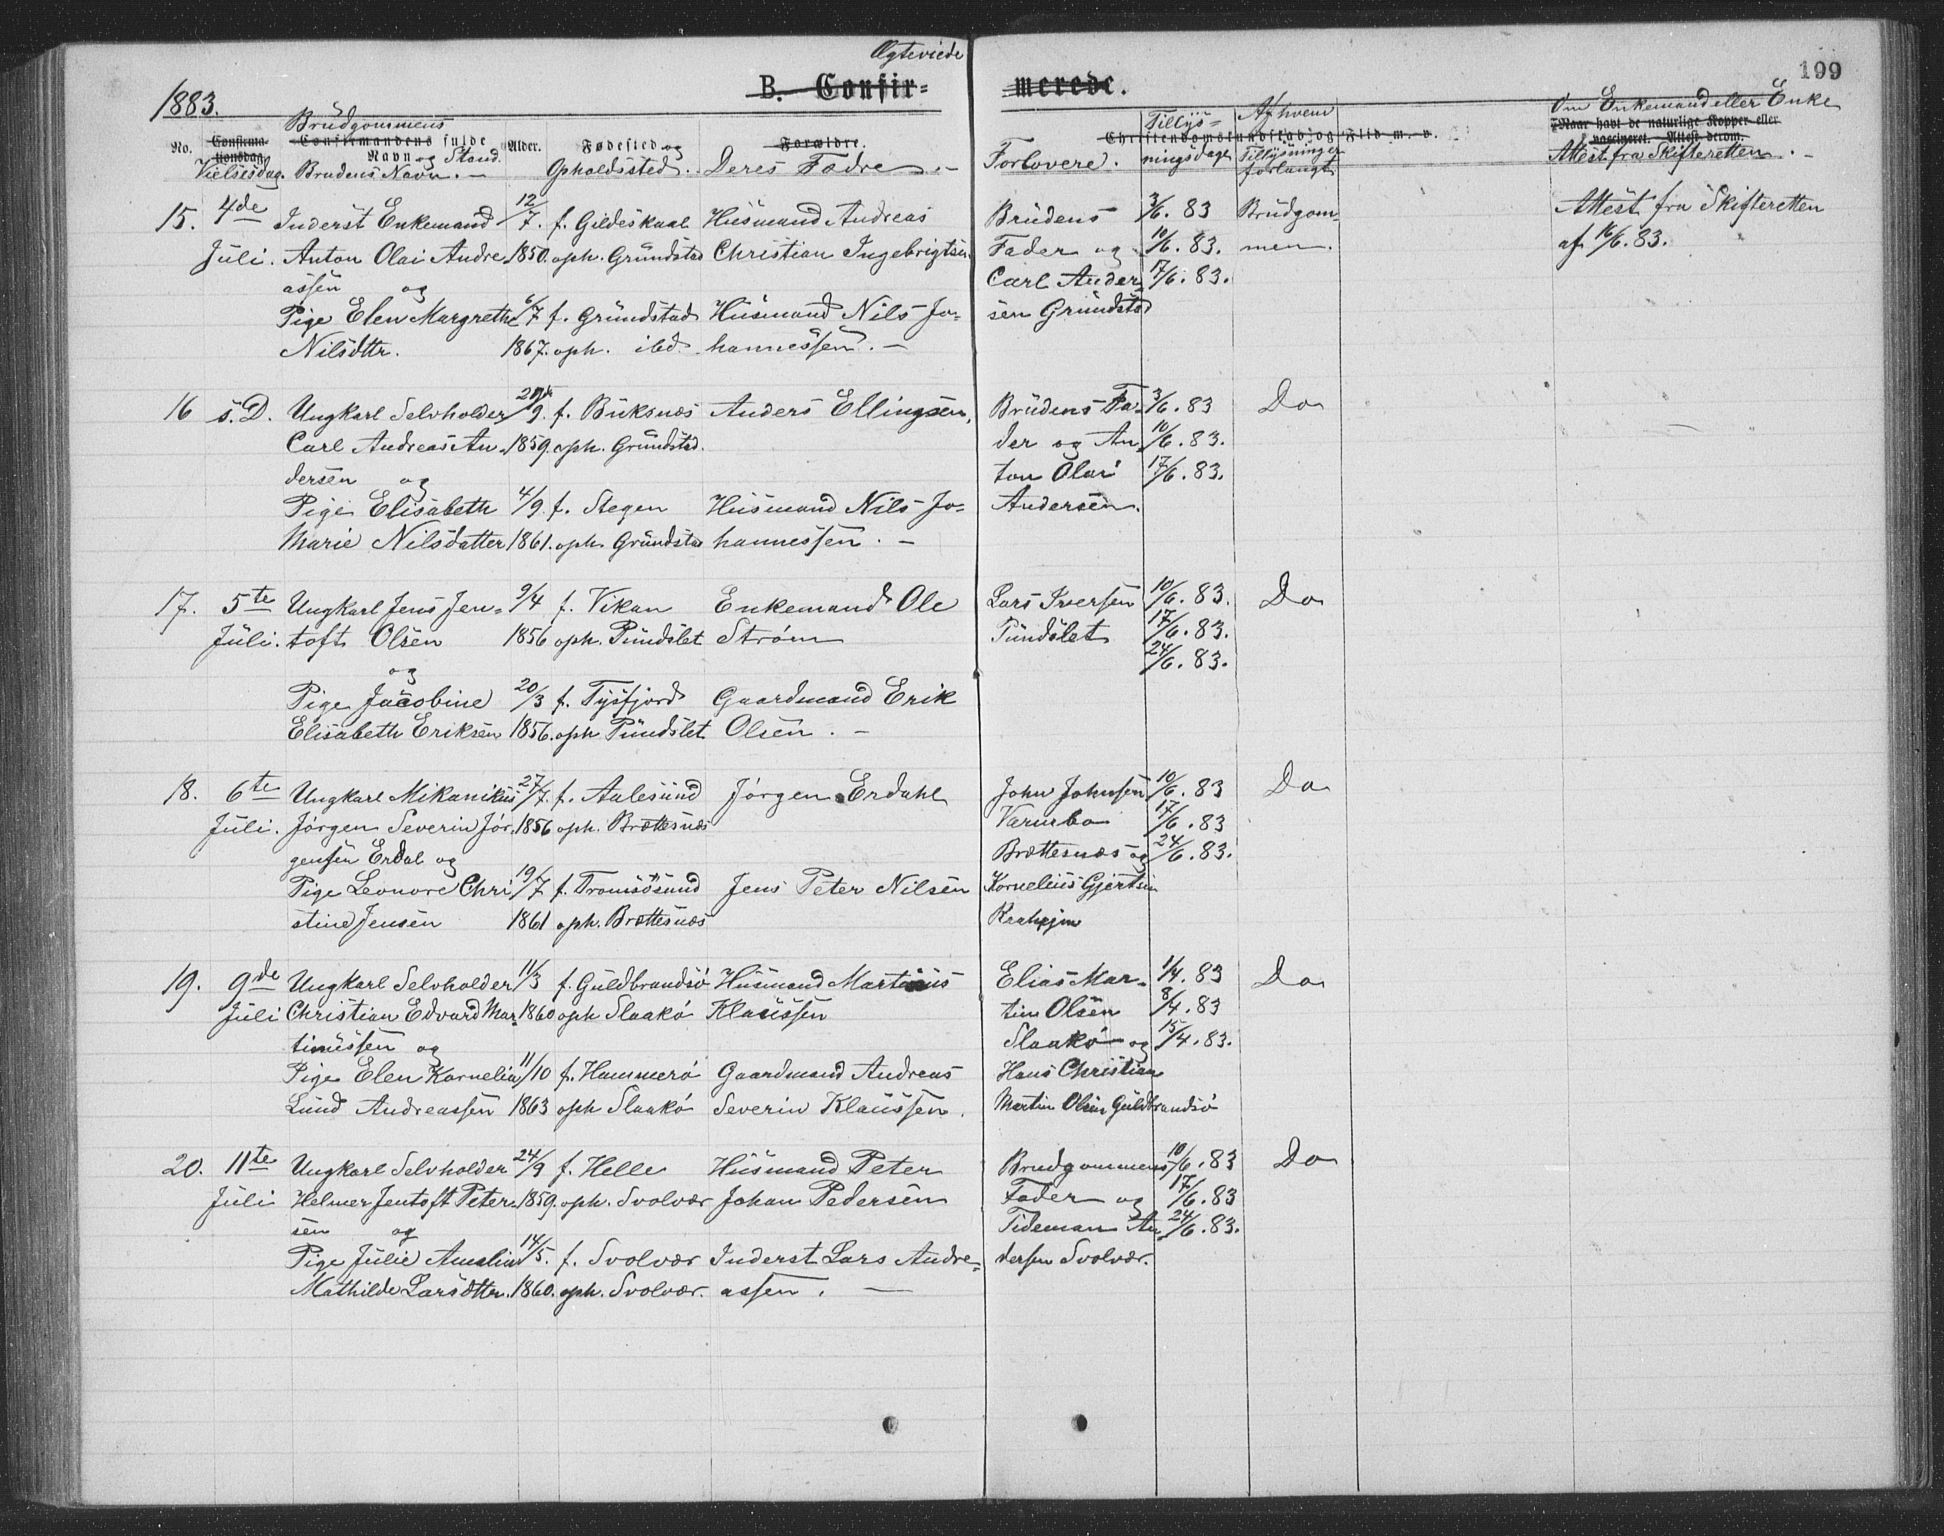 Ægteviede
199
1883.
B. Confir= merede.
Brudgommens
No. Confirmationsdag. Confirmandens fulde Navn og Stand. Alder. Fødested og Forældre. Christendomskundskab og Flid m. v. Naar havt de naturlige Kopper eller vaccineret. Attest derom.
Vielsesdag. Brudens Navn. — Opholdssted. Deres Fadre. — Forlovere. Tillysningsdage Af hvem Tillysninger forlangt Om Enkemand eller Enke Attest fra Skifteretten. —
15. 4de Inderst Enkemand 12/7. f. Gildeskaal Husmand Andreas Brudens 3/6. 83 Brudgom Attest fra Skifteretten
Juli. Anton Olai Andre 1850. oph. Grundstad Christian Ingebrigtsen Fader og 10/6. 83. men. af 16/6. 83.
assen og Carl Ander 17/6. 83.
Pige Elen Margrethe 6/7 f. Grundstad Husmand Nils Jo= sen Grundstad
Nilsdttr. 1867. oph. ibd. hannessen. —
16 s. D. Ungkarl Selvholder /9. f. Buksnæs Anders Ellingsen, Brudens Fa= 3/6. 83 Do
Carl Andreas An= 1859. oph. Grundstad. der og An 10/6. 83.
dersen og ton Olai 17/6. 83.
Pige Elisabeth 4/9. f. Stegen Husmand Nils Jo= Andersen.
Marie Nilsdatter 1861. oph. Grundstad hannessen. —
17. 5te Ungkarl Jens Jen= 9/4 f. Vikan Enkemand Ole Lars Iversen 10/6. 83. Do
Juli. toft Olsen 1856 oph. Pundslet Strøm Pundslet 17/6. 83.
og 24/6. 83.
Pige Jacobine 20/3 f. Tysfjord Gaardmand Erik
Elisabeth Eriksen 1856. oph Pundslet Olsen. —
18. 6te Ungkarl Mikanikus 27/7. f. Aalesund Jørgen Erdahl John Johnsen 10/6. 83 Do
Juli. Jørgen Severin Jør= 1856 oph. Brettesnæs 17/6. 83
gensen Erdal og Brættesnæs og 24/6. 83.
Pige Leonore Chri 19/7 f. Tromsösund Jens Peter Nilsen Kornelius Gjertsen
stine Jensen 1861 oph. Brettesnæs
19. 9de Ungkarl Selvholder 11/3 f. Guldbrandsö Husmand Martinus Elias Mar= 1/4. 83 Do
Juli Christian Edvard Mar= 1860 oph Slaakö Klaussen tin Olsen 8/4. 83
tinussen og Slaakö og 15/4. 83.
Pige Elen Kornelia 11/10 f. Hammerö Gaardmand Andreas Hans Christian
Lund Andreassen 1863 oph Slaakö Severin Klaussen. Martin Olsen Guldbrandsö
20. 11te Ungkarl Selvholder 24/9 f. Helle Husmand Peter Brudgommens 10/6. 83 Do
Juli Helmer Jentoft Peter= 1859. oph. Svolvær Johan Pedersen Fader og 17/6. 83
sen og Tideman An 24/6. 83.
Pige Julie Amalia 14/5. f. Svolvær Inderst Lars Andre= dersen Svolvær.
Mathilde Larsdttr. 1860. oph. Svolvær. assen. —